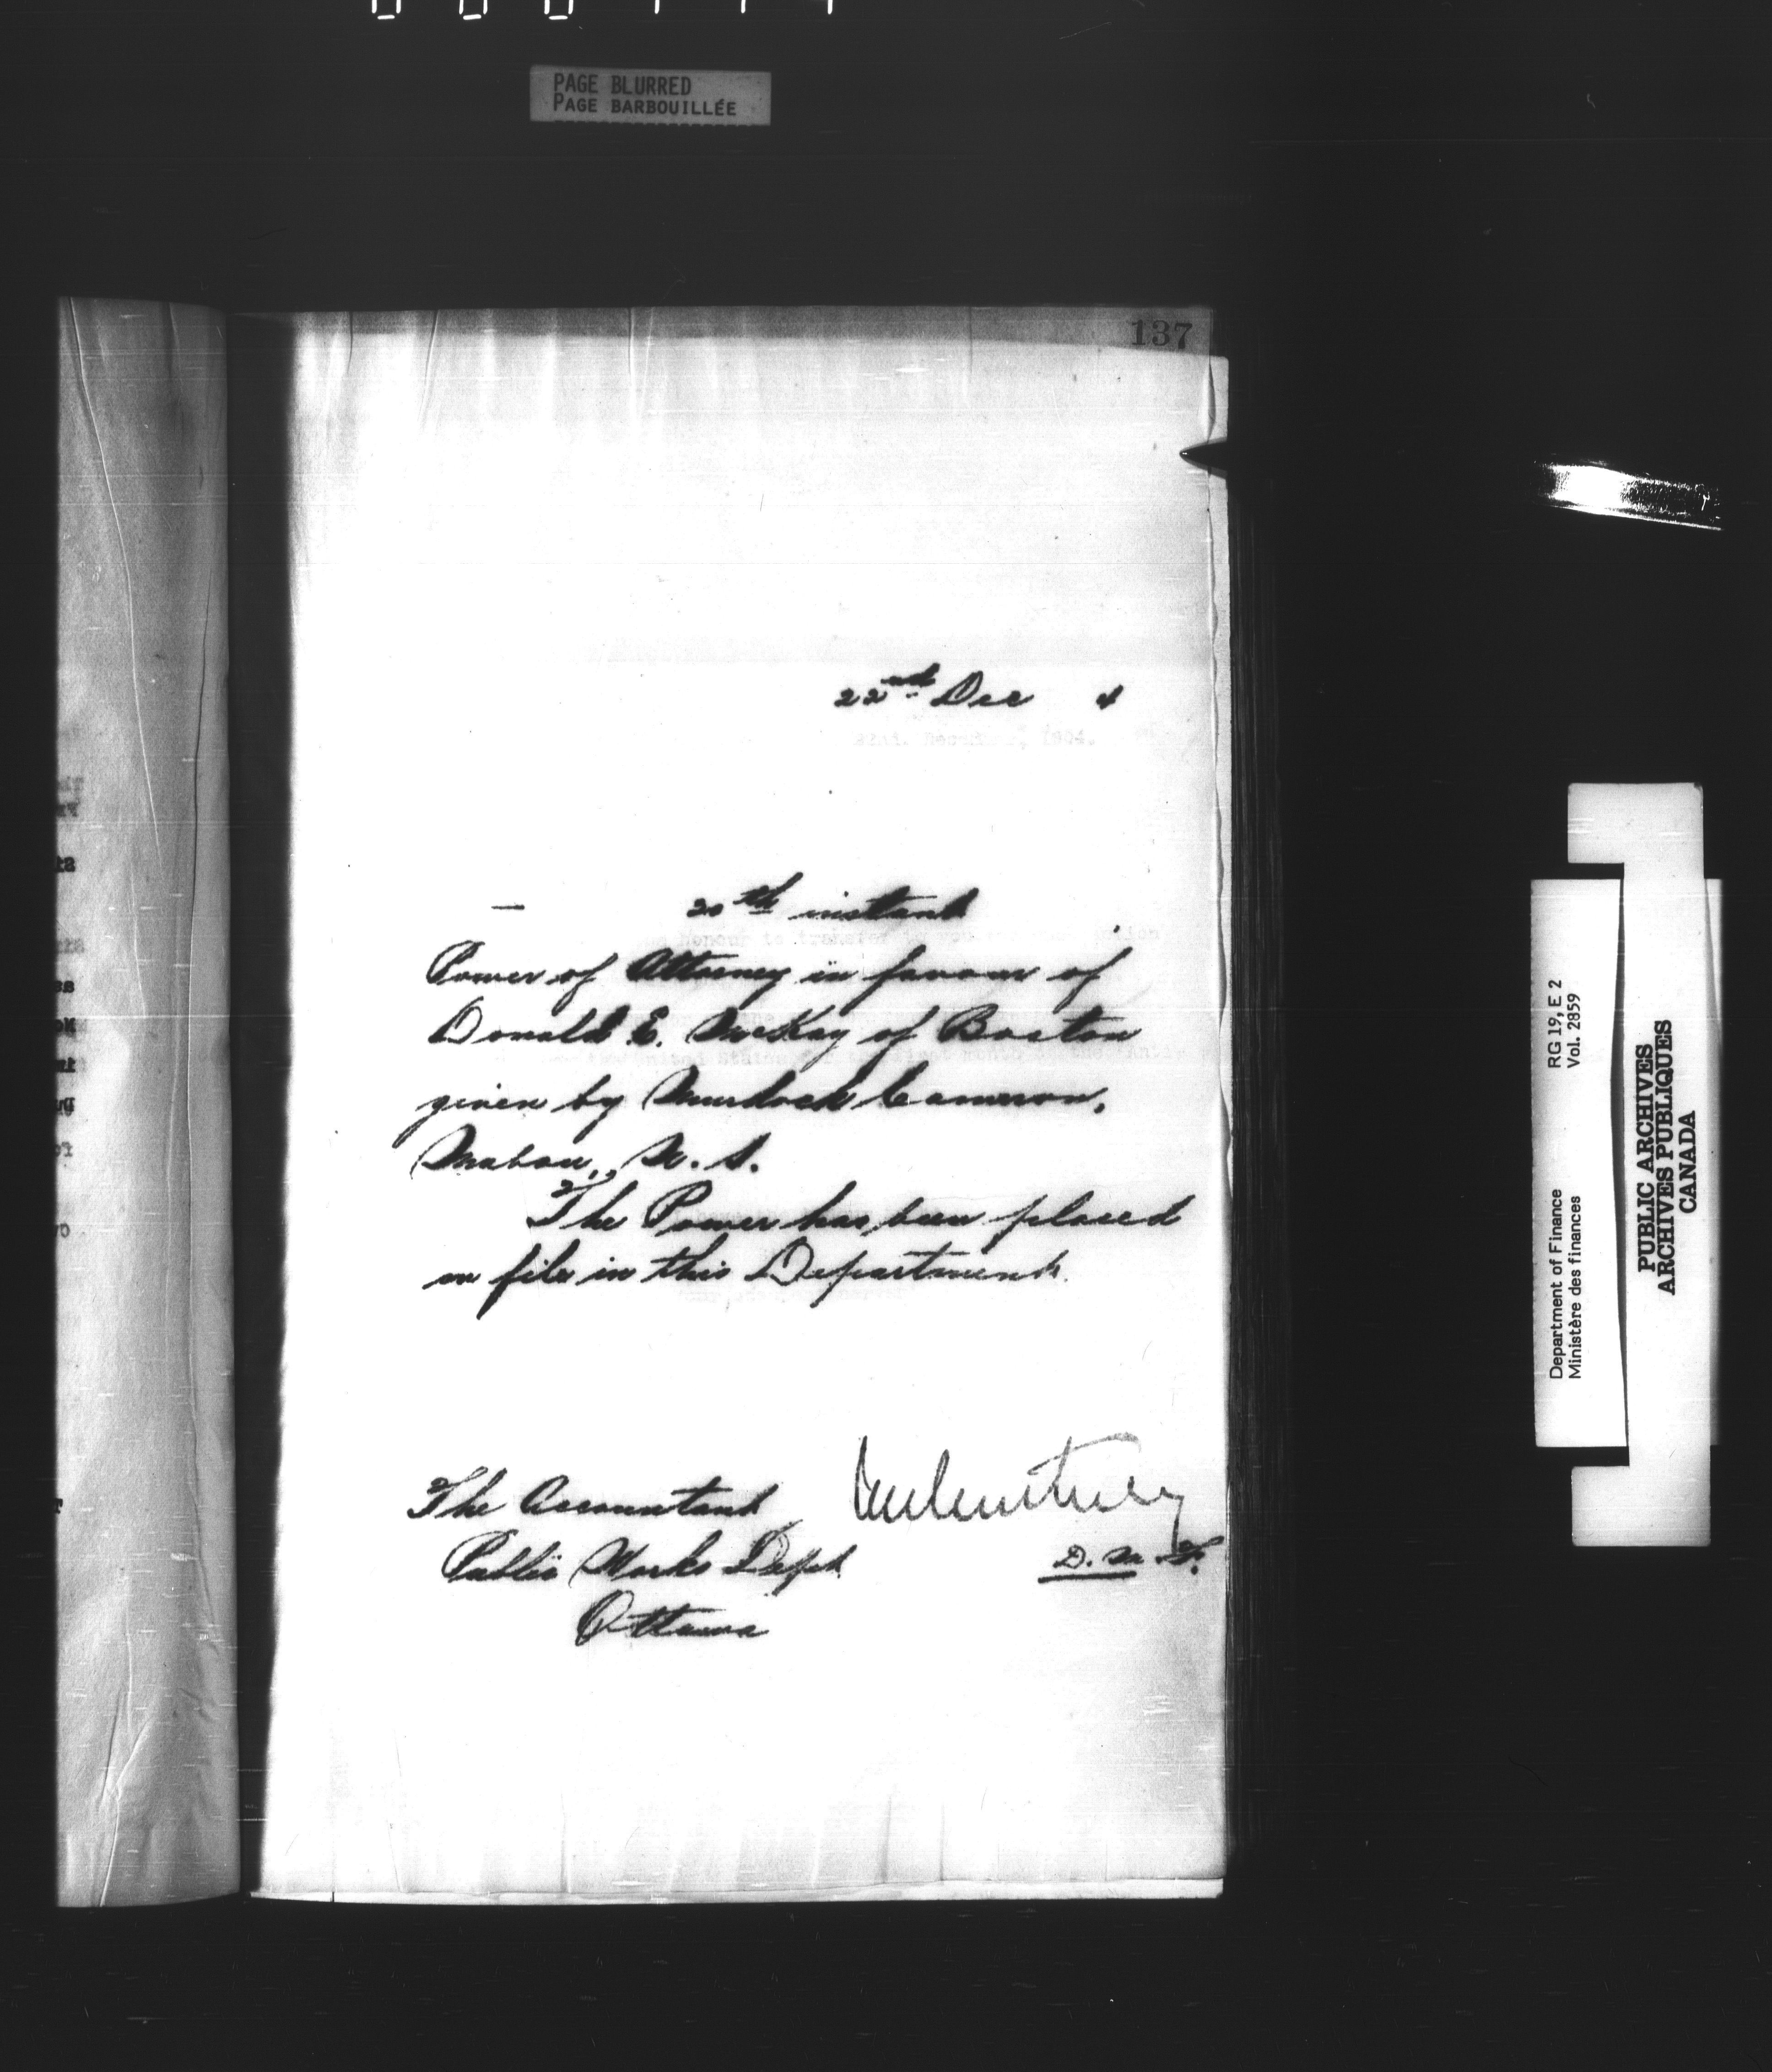 PAGE BLURRED
PAGE BARBOUILLÉE
137
22nd Dec 4
22nd. December, 1904.
— 20th instant
Power of Attorney in favour of
Donald E. McKay of Boston
given by Murdoch Cameron,
Mabou, N. S.
The Power has been placed
on file in this Department.
The Accountant
Public Works Dept.
Ottawa
D. M. F.
RG 19, E 2
Vol. 2859
Department of Finance
Ministère des finances
PUBLIC ARCHIVES
ARCHIVES PUBLIQUES
CANADA